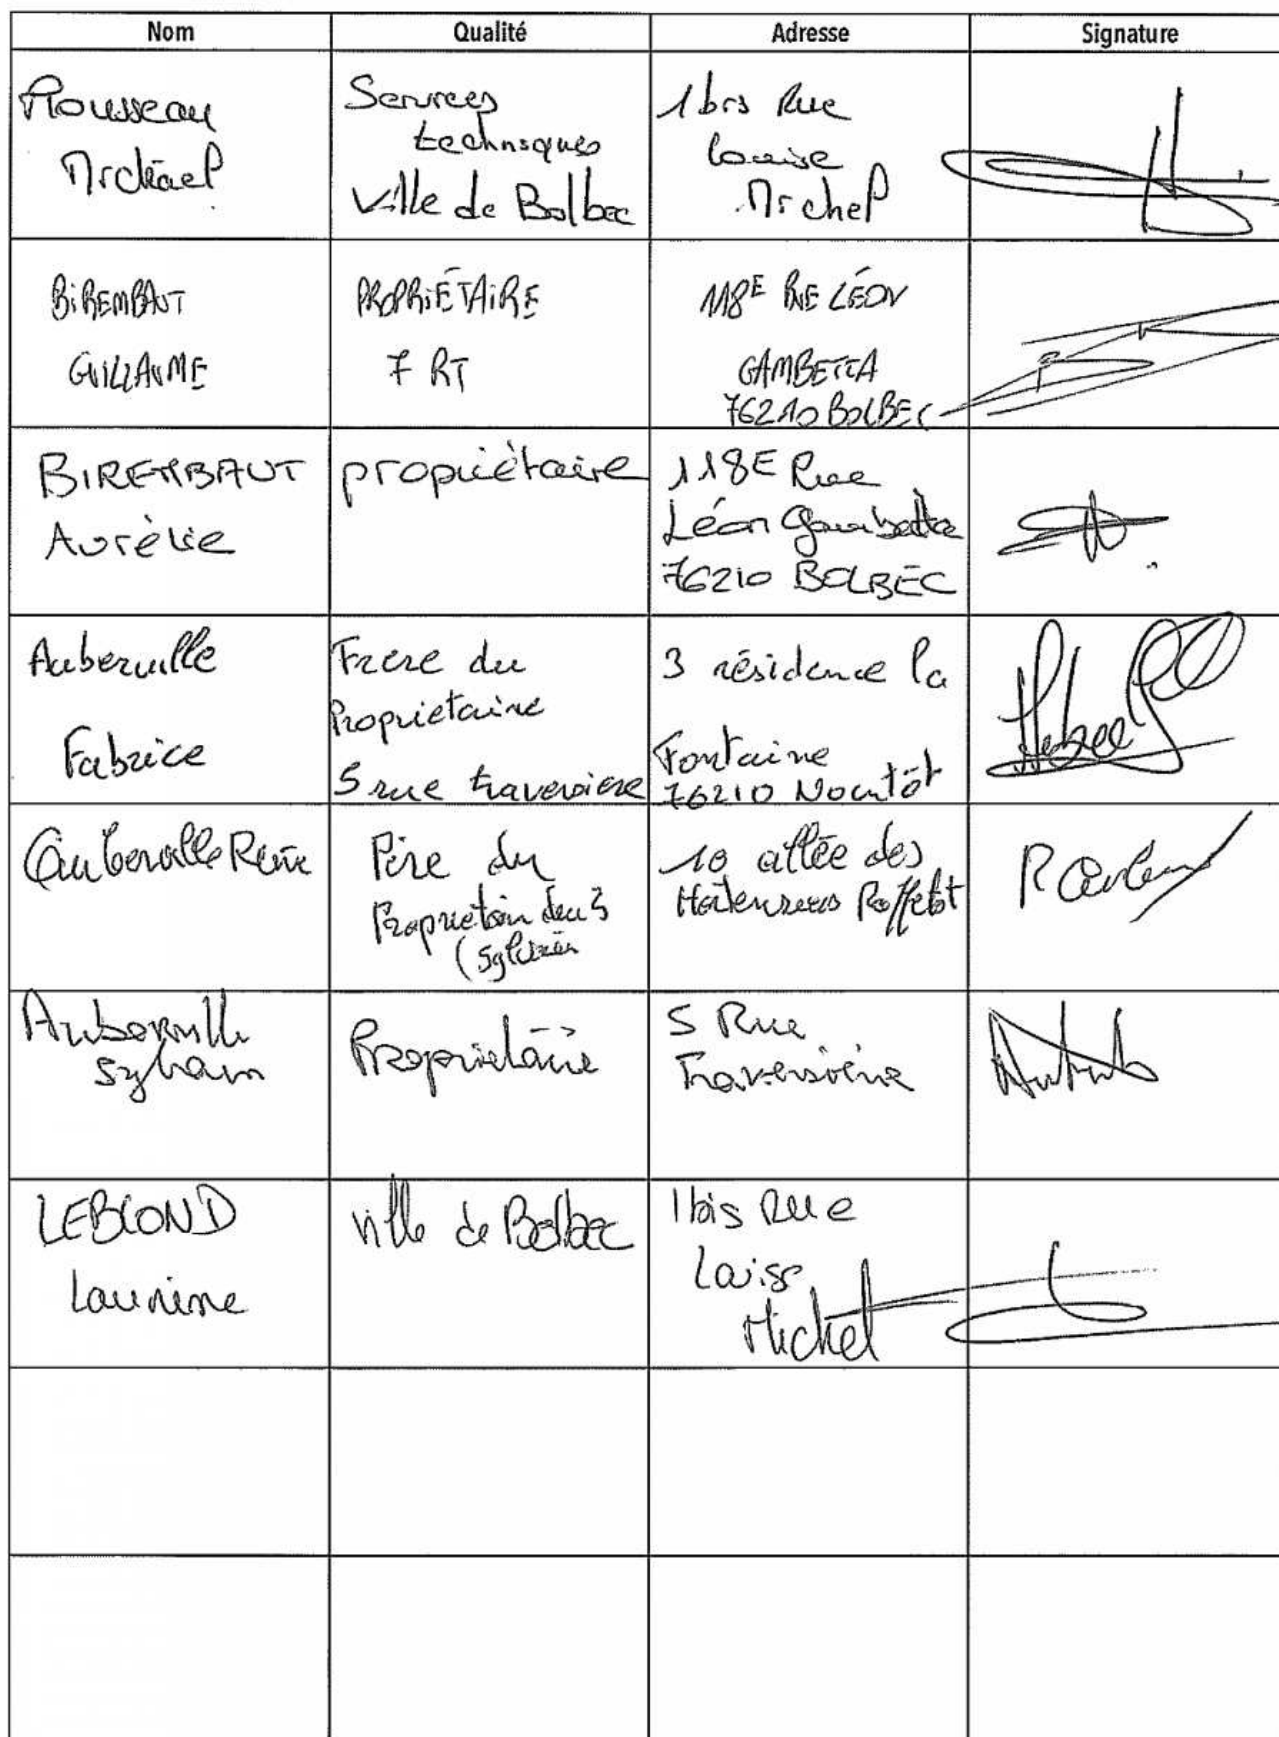 Nom Qualité Adresse Signature
Rousseau
Mickael
Services
techniques
Ville de Bolbec
1 bis Rue
Louise
Michel
BIREMBAUT
GUILLAUME
PROPRIÉTAIRE
7 RT
118E RUE LÉON
GAMBETTA
76210 BOLBEC
BIREMBAUT
Aurélie
propriétaire
118E Rue
Léon Gambetta
76210 BOLBEC
Auberville
Fabrice
Frere du
Proprietaire
5 rue traversiere
3 résidence la
Fontaine
76210 Nointôt
Auberville
Père du
Proprietaire du 5
(Sylvain
10 allée des
Auberville
Sylvain
Proprietaire
5 Rue
Traversière
LEBLOND
Ville de Bolbec
1 bis Rue
Louise
Michel